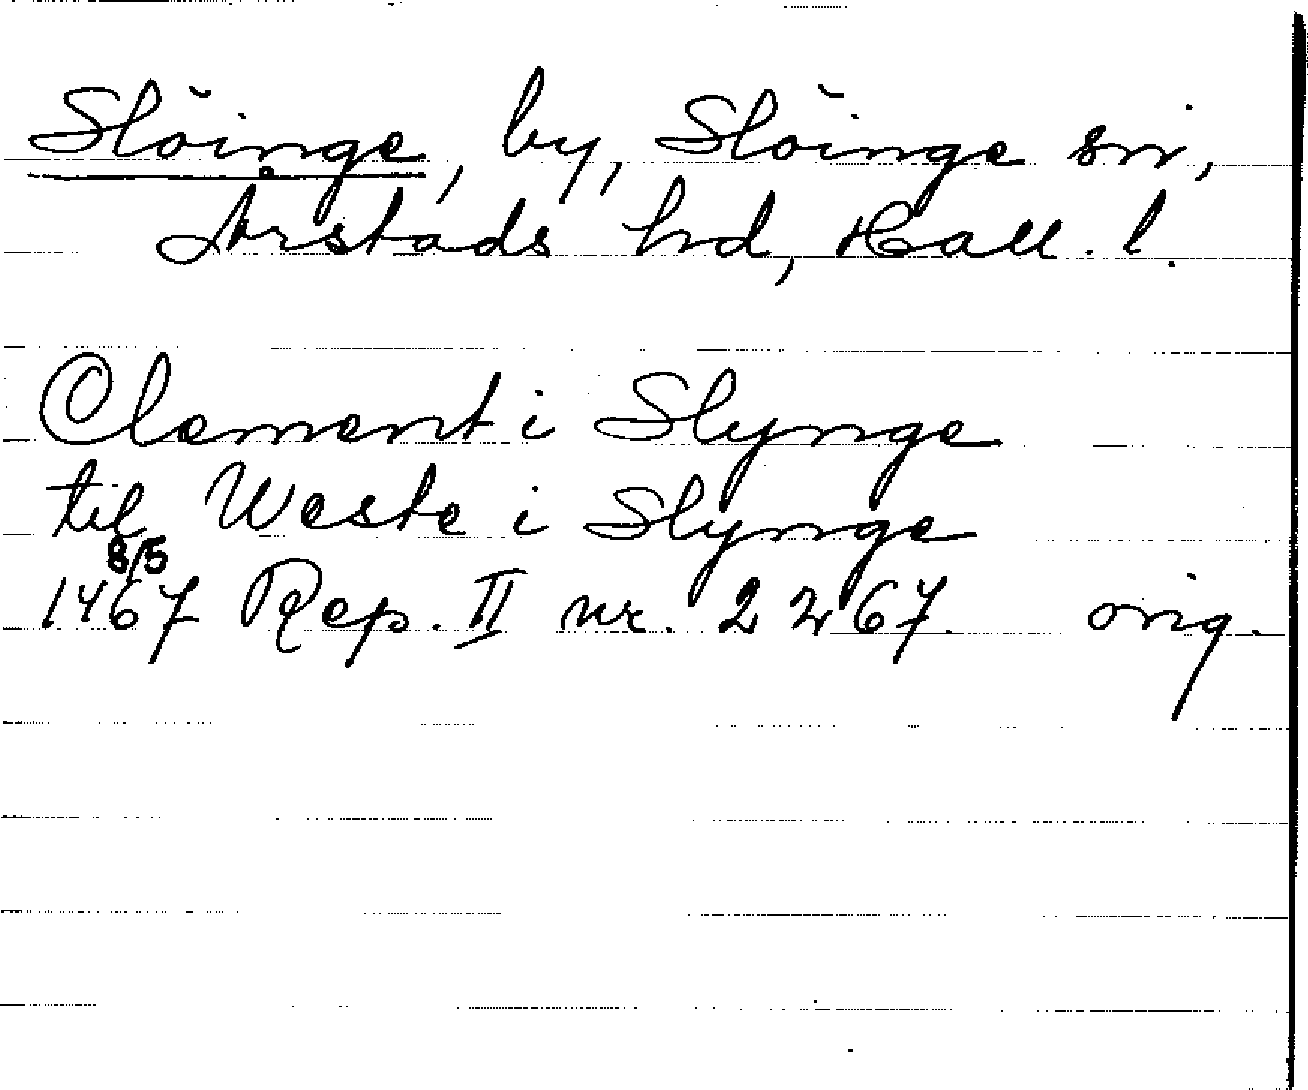 Slöinge, by, Slöinge sn,
Årstads hd, Hall. l.
Clement i Slynge
til Weste i Slynge
8/5
1467 Rep. II nr. 2267. orig.